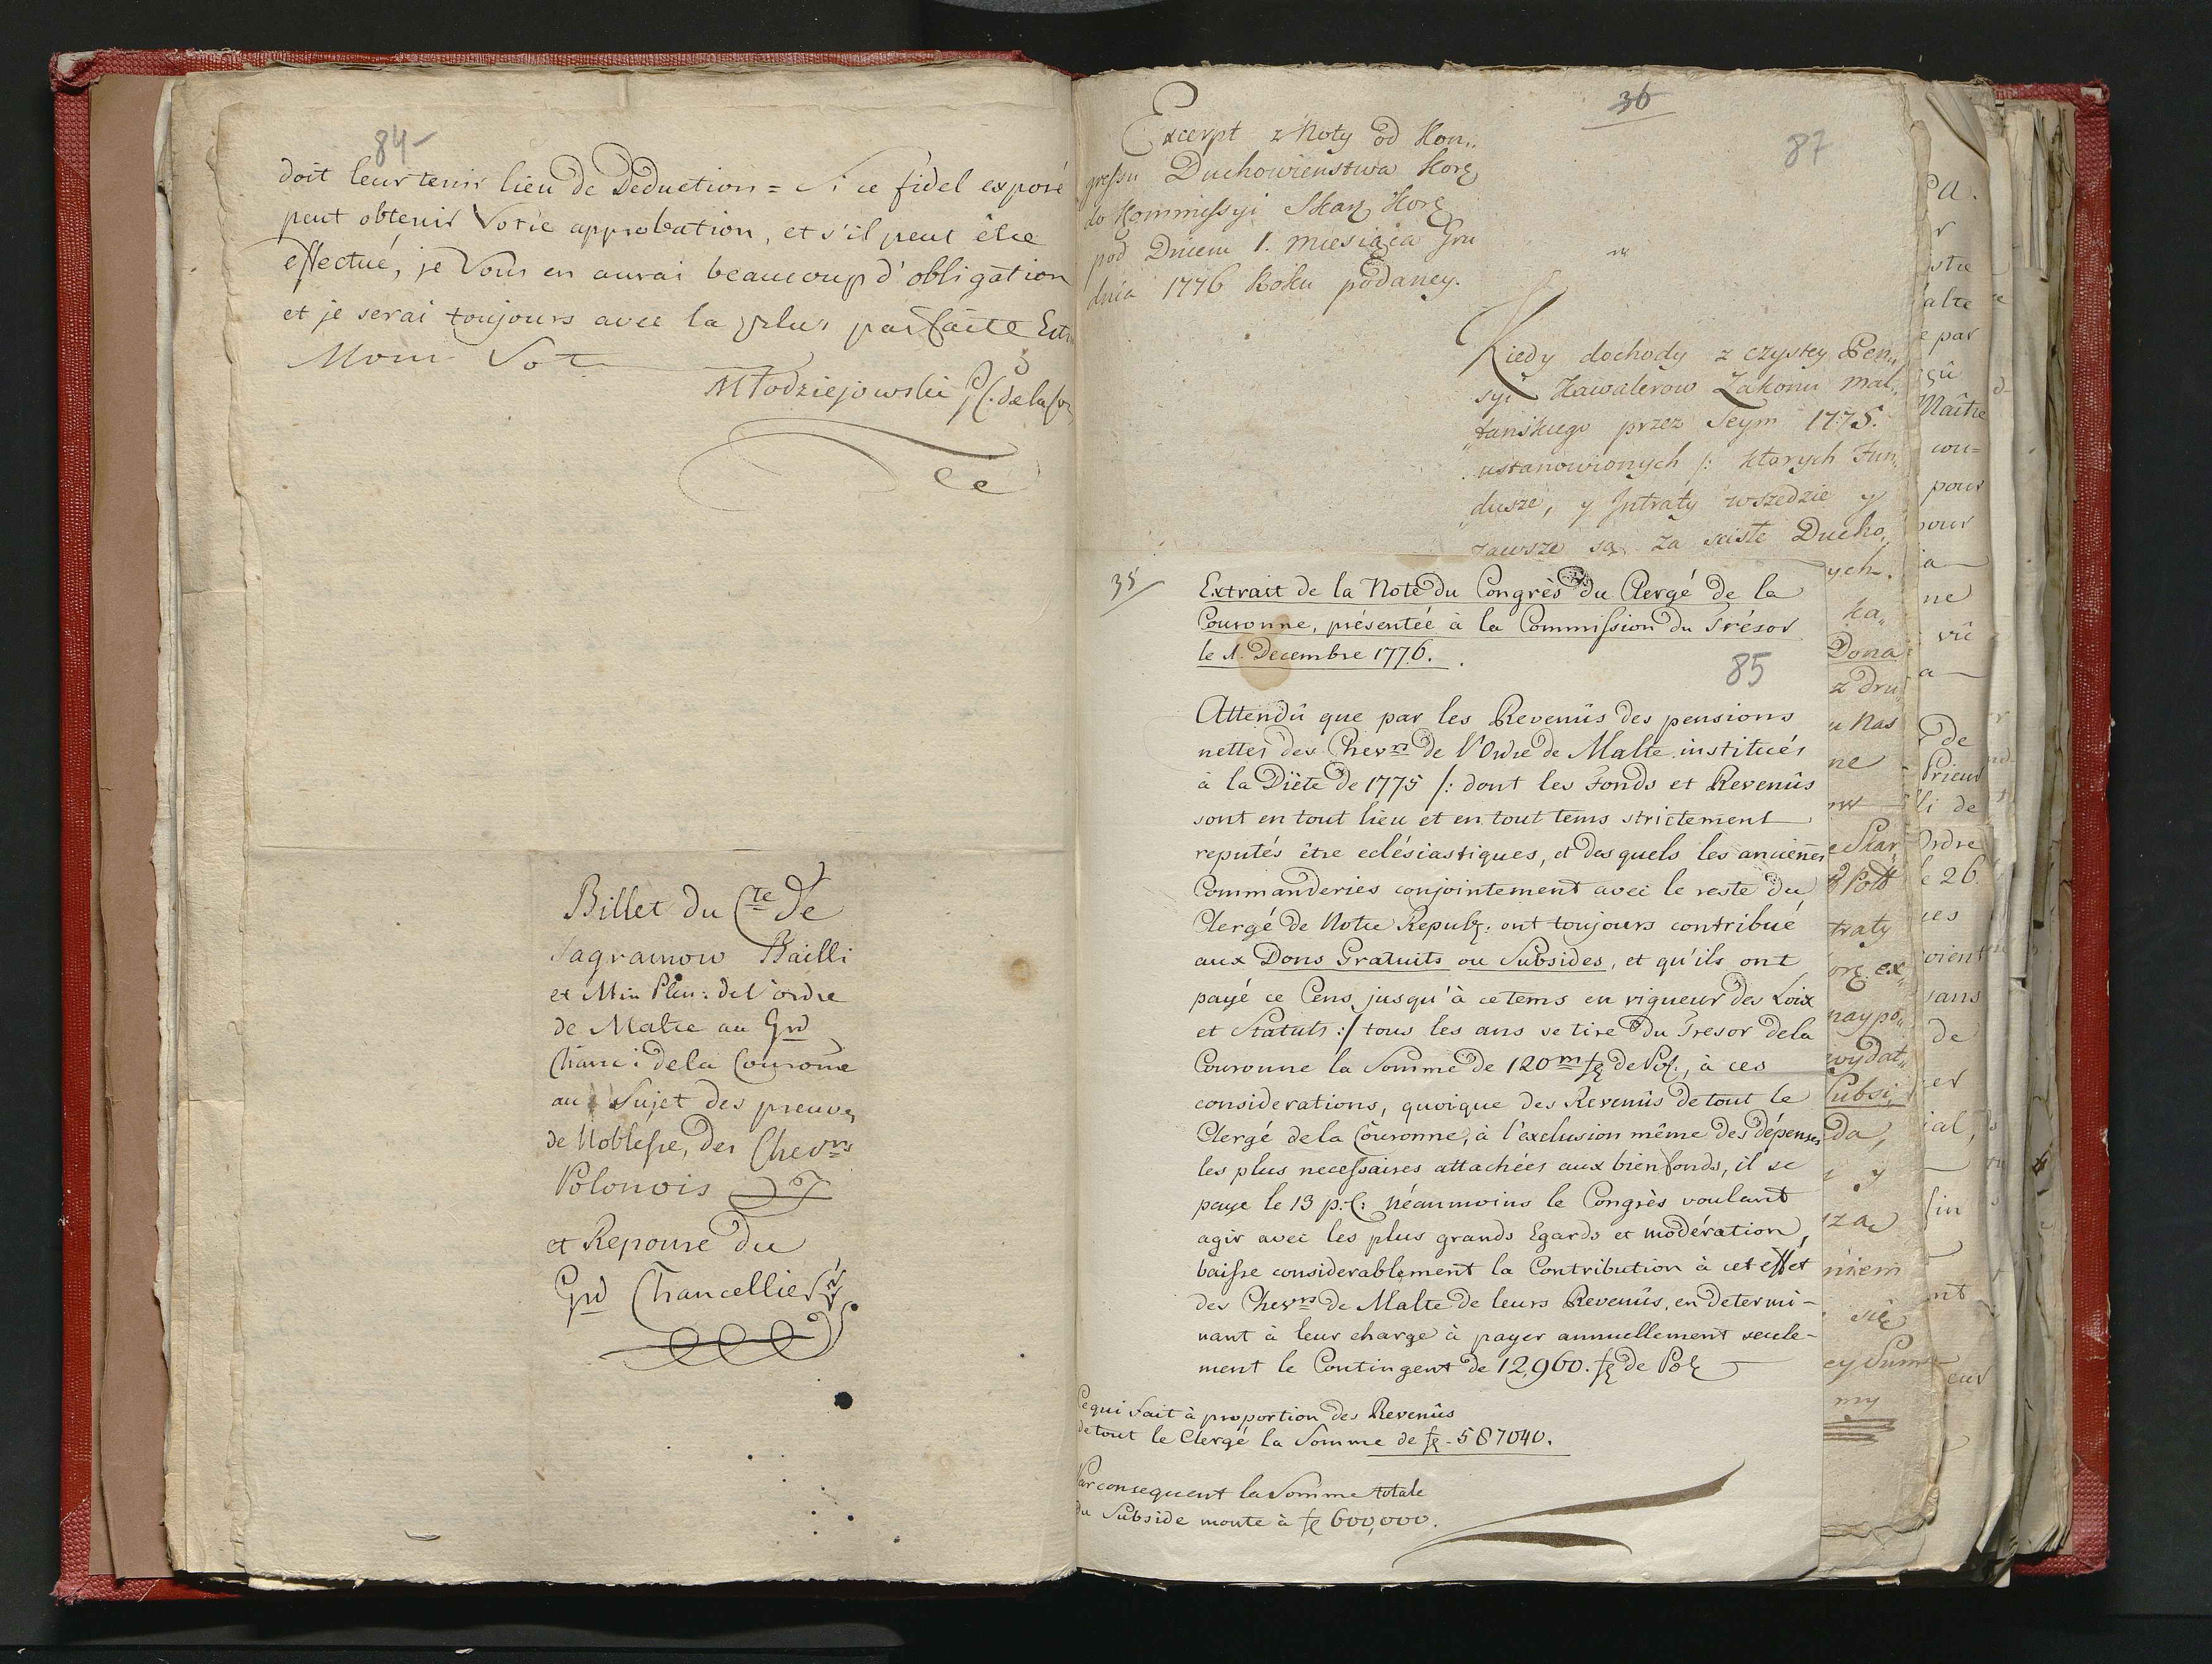 84
doit leur tenir lieu de Deduction = Si ce fidel exposé
peut obtenir Votre approbation, et s'il peut être
effectué, je Vous en aurai beaucoup d'obligation
et je serai toujours avec la plus parfaite
Młodziejowski
Billet du Cte de
Sagramow Bailli
et Min Plen: de l'ordre
de Malte au Grd
Chanc: de la Couronne
au Sujet des preuves
de Noblesse, des Chevrs
Polonois
et Reponse du
Grd Chancellier
36
87
Excerpt z Noty od Kon„
gressu Duchowienstwa Korę
do Kommissyi Skarę Korę
pod Dniem 1. miesiąca Gru
dnia 1776 Roku podaney.
Kiedy dochody z czystey Pen„
syi Kawalerow Zakonu mal„
„tanskiego przez Seym 1775.
ustanowionych /: ktorych Fun„
„dusze, y Intraty wszedzie y
zawsze są za sciste Ducho„
35
Extrait de la Note du Congrès du Clergé de la
Couronne, présentée à la Commission du Trésor
le 1. Decembre 1776.
85
Attendû que par les Revenûs des pensions
nettes des Chevrs de l'Ordre de Malte institués
à la Diète de 1775 /: dont les Fonds et Revenûs
sont en tout lieu et en tout tems strictement
reputés être eclésiastiques, et desquels les anciennes
Commanderies conjointement avec le reste du
Clergé de Notre Republ: ont toujours contribué
aux Dons Gratuits ou Subsides, et qu'ils ont
payé ce Cens, jusqu'à ce tems en vigueur des Loix
et Statuts :/ tous les ans se tire du Tresor de la
Couronne la Somme de 120m fl de Pol:, à ces
considerations, quoique des Revenûs de tout le
Clergé de la Couronne, à l'exclusion même des dépenses
les plus necessaires attachées aux bienfonds, il se
paye le 13 p.C: néanmoins le Congrès voulant
agir avec les plus grands Egards et modération,
baisse considerablement la Contribution à cet effet
des Chevrs de Malte de leurs Revenûs, en determi-
nant à leur charge à payer annuellement seule-
ment le Contingent de 12,960. fl de Pol
Ce qui fait à proportion des Revenûs
de tout le Clergé la Somme de fl - 587040.
Par consequent la Somme totale
du Subside monte à fl 600,000.